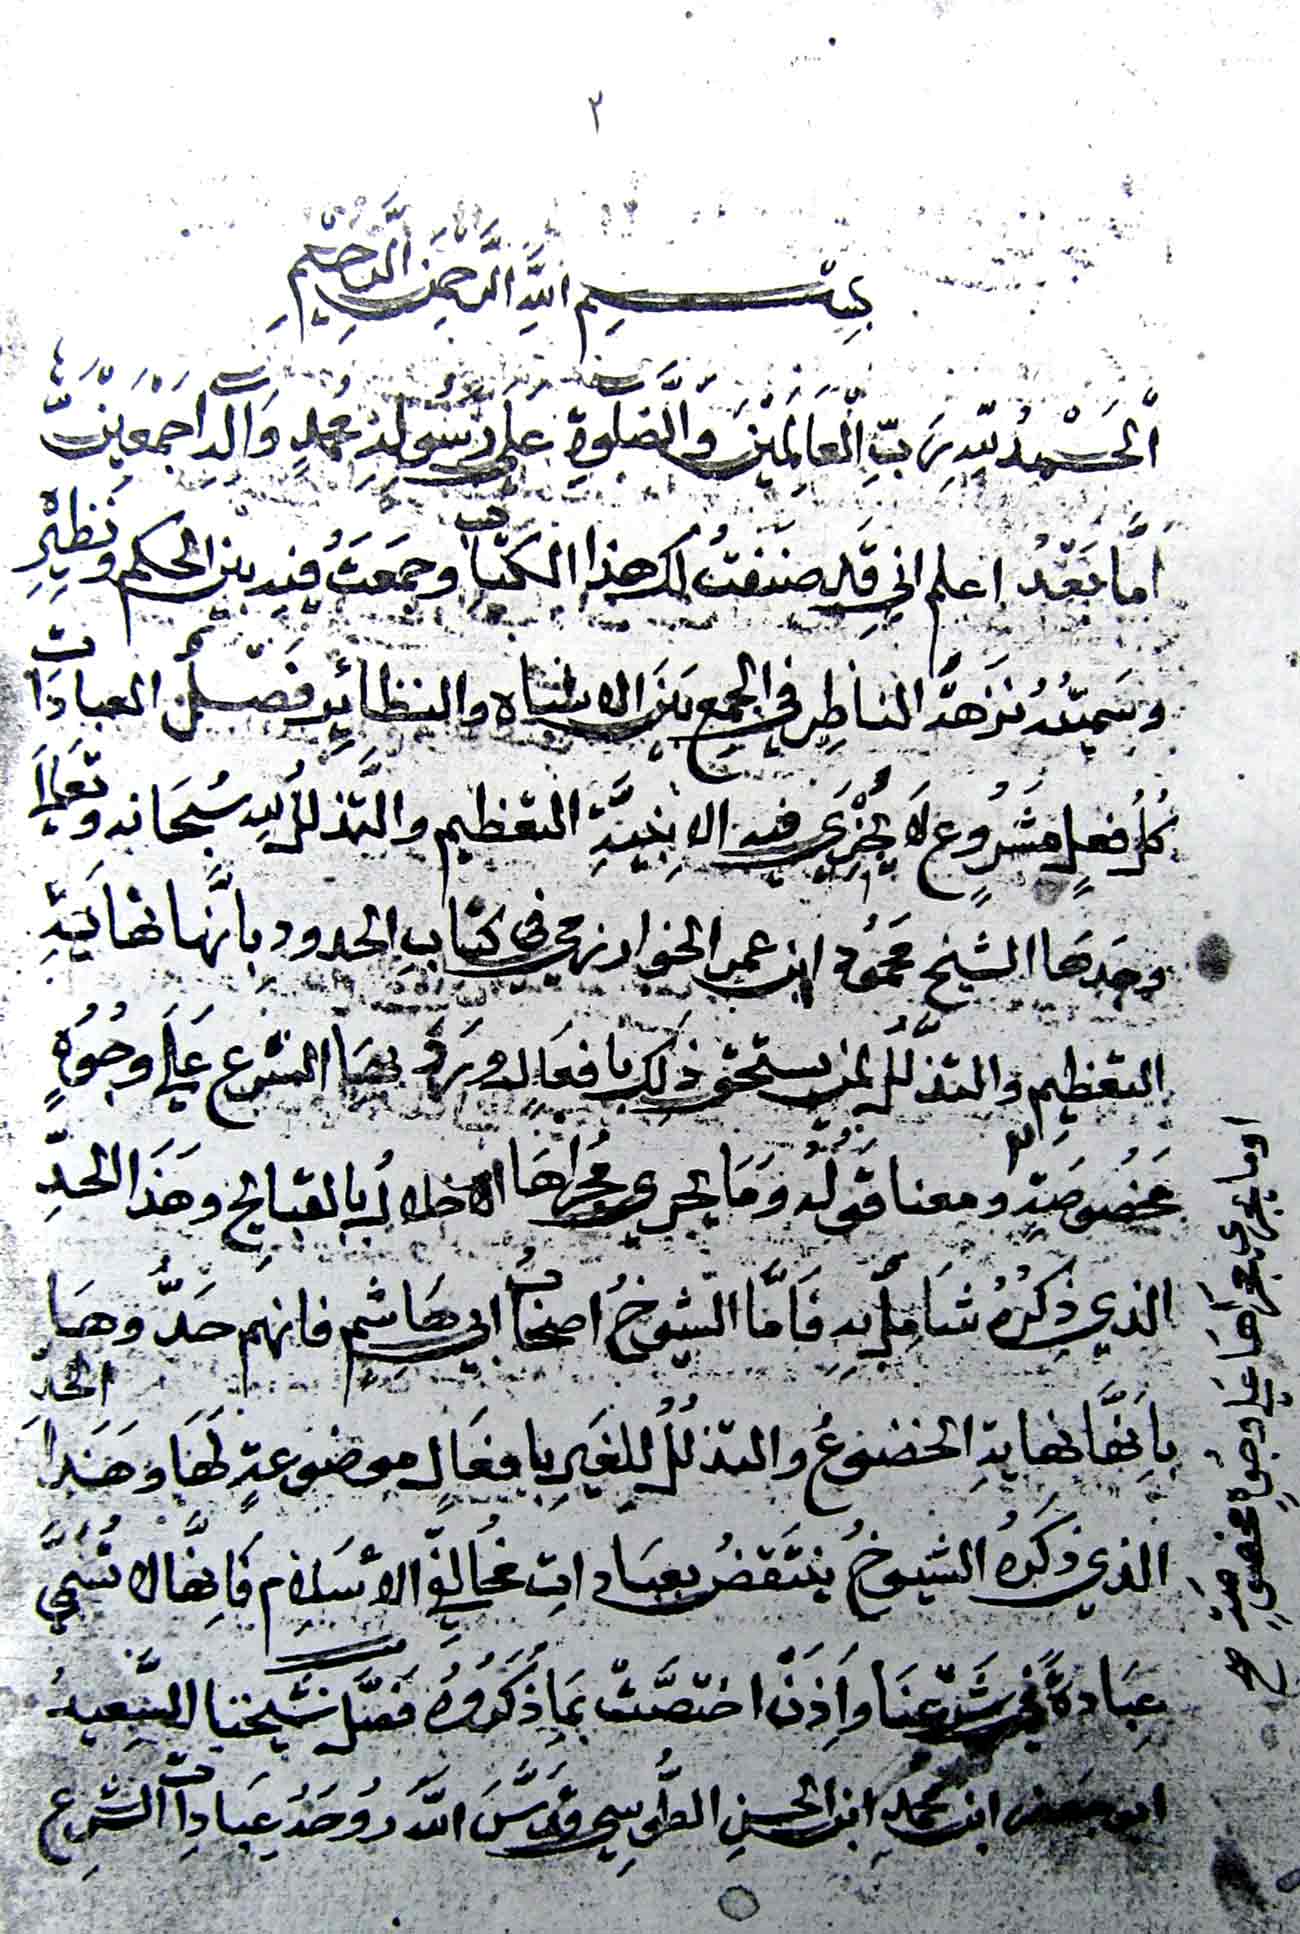 ٢
بسم الله الرحمن الرحيم
الحمد لله رب العالمين والصلوة على رسوله محمد واله اجمعين
اما بعد اعلم اني قد صنفت لك هذا الكتاب وجمعت فيه بين الحكم ونظيره
وسميته نزهة الناظر في الجمع بين الاشباه والنظائر فصل العبادات
كل فعل مشروع لا يجزي فيه الا بنية التعظيم والتذلل لله سبحانه وتعالى
وحدها الشيخ محمود ابن عمر الخوارزمي في كتاب الحدود بانها نهاية
التعظيم والتذلل لمن يستحق ذلك بافعال ورد بها الشرع على وجوه
مخصوصة ومعنا قوله وما يجري مجراها الاخلال بالقبايح وهذا الحد
الذي ذكره شامل به فاما الشيوخ اصحاب ابي هاشم فانهم حدوها
بانها نهاية الخضوع والتذلل للغير بافعال موضوعة لها وهذا الحد
الذي ذكره الشيوخ ينتقض بعبادات مخالفي الاسلام فانها لا تسمى
عبادة في شرعنا واذن اختصت بما ذكروه فصل شيخنا السعيد
ابو جعفر ابن محمد ابن الحسن الطوسي قدس الله روحه عبادات الشرع
او ما يجري مجراها على وجوه مخصوصة صح